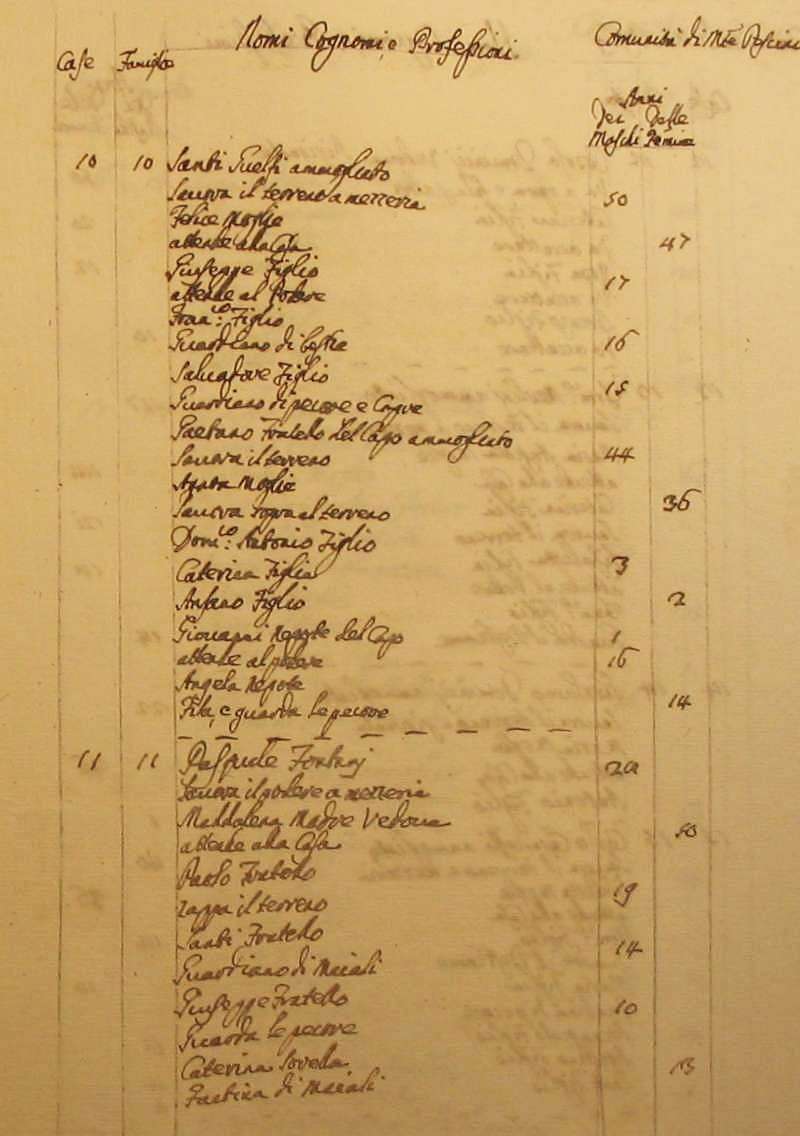 Case Famiglie Nomi Cognomi e Professioni Comunità di Mte
Anni
Dei Delle
Maschi Femine
10 10 Santi Guelfi ammogliato
Lavora il terreno a mezzeria 50
Felice Moglie
attende alla Casa 47
Giuseppe Figlio
attende al Podere 17
Franco: Figlio
Guardiano di bestie 16
Salvadore Figlio 15
Guardiano di pecore e Capre
Gaetano Fratello del Capo ammogliato
Lavora il terreno 44
Agata Moglie
Lavora sopra al terreno 36
Domco: Antonio Figlio
Caterina Figlia 3
Ansano Figlio 2
Giovanni Nepote del Capo 1
attende al podere 16
Angela Nepote
Fila, e guarda le pecore 14
11 11 Pasquale
Lavora il podere a mezzeria
Maddalena Madre Vedova
attende alla Casa 50
Paolo Fratello
zappa il terreno 19
Santi Fratello
Guardiano di Maiali 14
Giuseppe Fratello
Guarda le pecore 10
Caterina Sorella
di Maiali 13